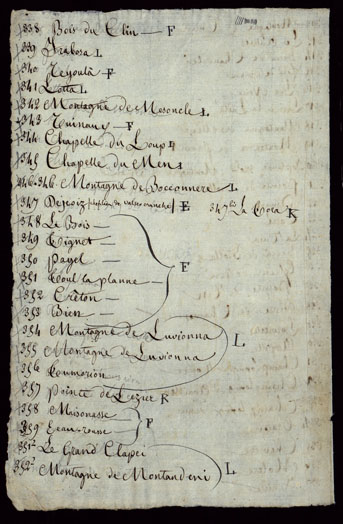 338 Bois du Clin — F
339 Arabosa L
340 Teyoula — F
341 Lotta L
342 Montagne de Mesoncle L
343 Tuinauy — F
344 Chapelle du Loup L
345 Chapelle du Men
346 Montagne de Bocconnere L
347 Dejoiz E 347bis La Crota K
348 Le Bois —
349 Vignet —
350 Pagel —
351 Coul la planne —
352 Crêton —
353 Bien — E
354 Montagne de Luvionna
355 Montagne de Luvionna L
356 Coumorion
357 Pointe de Lazur K
358 Maisonasse
359 Ecau rousse F
351² Le Grand Clapei
352² Montagne de Montandeni L